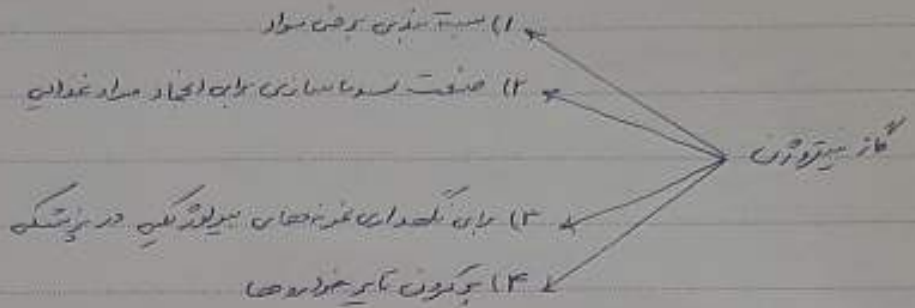 ۱) بسته بندی برخی مواد
۲) صنعت سرماسازی برای انجماد مواد غذایی
گاز نیتروژن
۳) برای نگهداری نمونه‌های بیولوژیکی در پزشکی
۴) پر کردن تایر خودروها